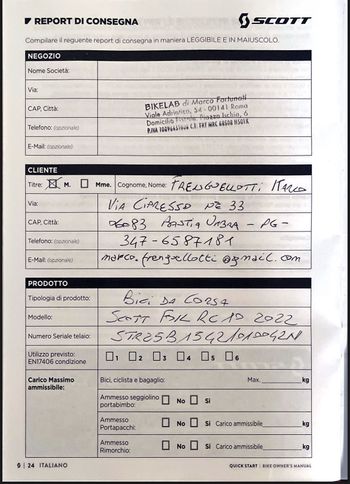 REPORT DI CONSEGNA
SCOTT
Compilare il reguente report di consegna in maniera LEGGIBILE E IN MAIUSCOLO.
NEGOZIO
Nome Società:
Via:
CAP, Città:
Telefono: (opzionale)
E-Mail: (opzionale)
BIKELAB di Marco Fortunati
Viale Adriatico, 54 - 00141 Roma
Domicilio Fiscale Piazza Ischia, 6
CLIENTE
Titre: M. Mme. Cognome, Nome: FRENGUELLOTTI MARCO
Via: VIA CIPRESSO N° 33
CAP, Città: 06083 BASTIA UMBRA - PG -
Telefono: (opzionale) 347-6587181
E-Mail: (opzionale) marco.frenguellotti@gmail.com
PRODOTTO
Tipologia di prodotto: BICI DA CORSA
Modello: SCOTT FOIL RC 10 2022
Numero Seriale telaio:
Utilizzo previsto: 1 2 3 4 5 6
EN17406 condizione
Carico Massimo ammissibile: Bici, ciclista e bagaglio: Max. kg
Ammesso seggiolino portabimbo: No Si
Ammesso Portapacchi: No Si Carico ammissibile kg
Ammesso Rimorchio: No Si Carico ammissibile kg
24 ITALIANO
QUICK START | BIKE OWNER'S MANUAL